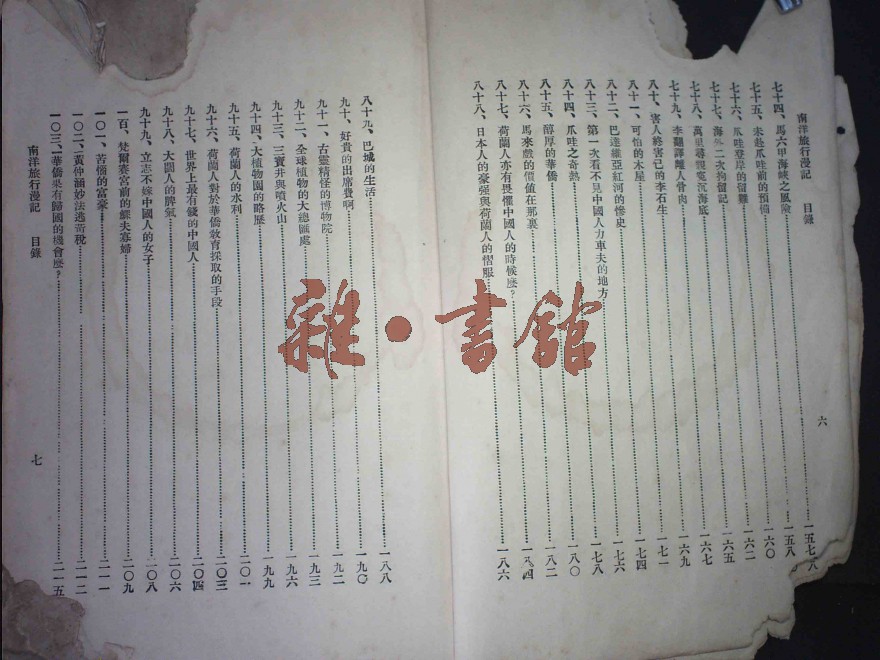 南洋旅行漫記　目錄
六
七十四、馬六甲海峽之風險…一五七
七十五、未赴爪哇前的預備…一五八
七十六、爪哇登岸的留難…一六〇
七十七、海外二次拘留記…一六二
七十八、萬里尋親竟沉海底…一六五
七十九、李翻譯離人骨肉…一六七
八十、害人終害已的李石生…一六九
八十一、可怡的木屋…一七一
八十二、巴達維亞紅河的慘史…一七四
八十三、第一次看不見中國人力車夫的地方…一七六
八十四、爪哇之奇熱…一七八
八十五、醇厚的華僑…一八〇
八十六、馬來戲的價值在那裏…一八二
八十七、荷蘭人亦有畏懼中國人的時候麽？…一八四
八十八、日本人的豪强與荷蘭人的慴服…一八六
八十九、巴城的生活…一八八
九十、好貴的出席費啊…一九〇
九十一、古靈精怪的博物院…一九二
九十二、全球植物的大總匯處…一九三
九十三、三寶井與噴火山…一九六
九十四、大植物園的略歷…一九九
九十五、荷蘭人的水利…二〇一
九十六、荷蘭人對於華僑敎育採取的手段…二〇三
九十七、世界上最有錢的中國人…二〇四
九十八、大闊人的脾氣…二〇六
九十九、立志不嫁中國人的女子…二〇八
一百、梵爾賽宮前的鰥夫寡婦…二〇九
一〇一、苦惱的富豪…二一一
一〇二、黃仲涵妙法逃苛稅…二一二
一〇三、華僑果有歸國的機會麽？…二一五
南洋旅行漫記　目錄
七
雜·書館